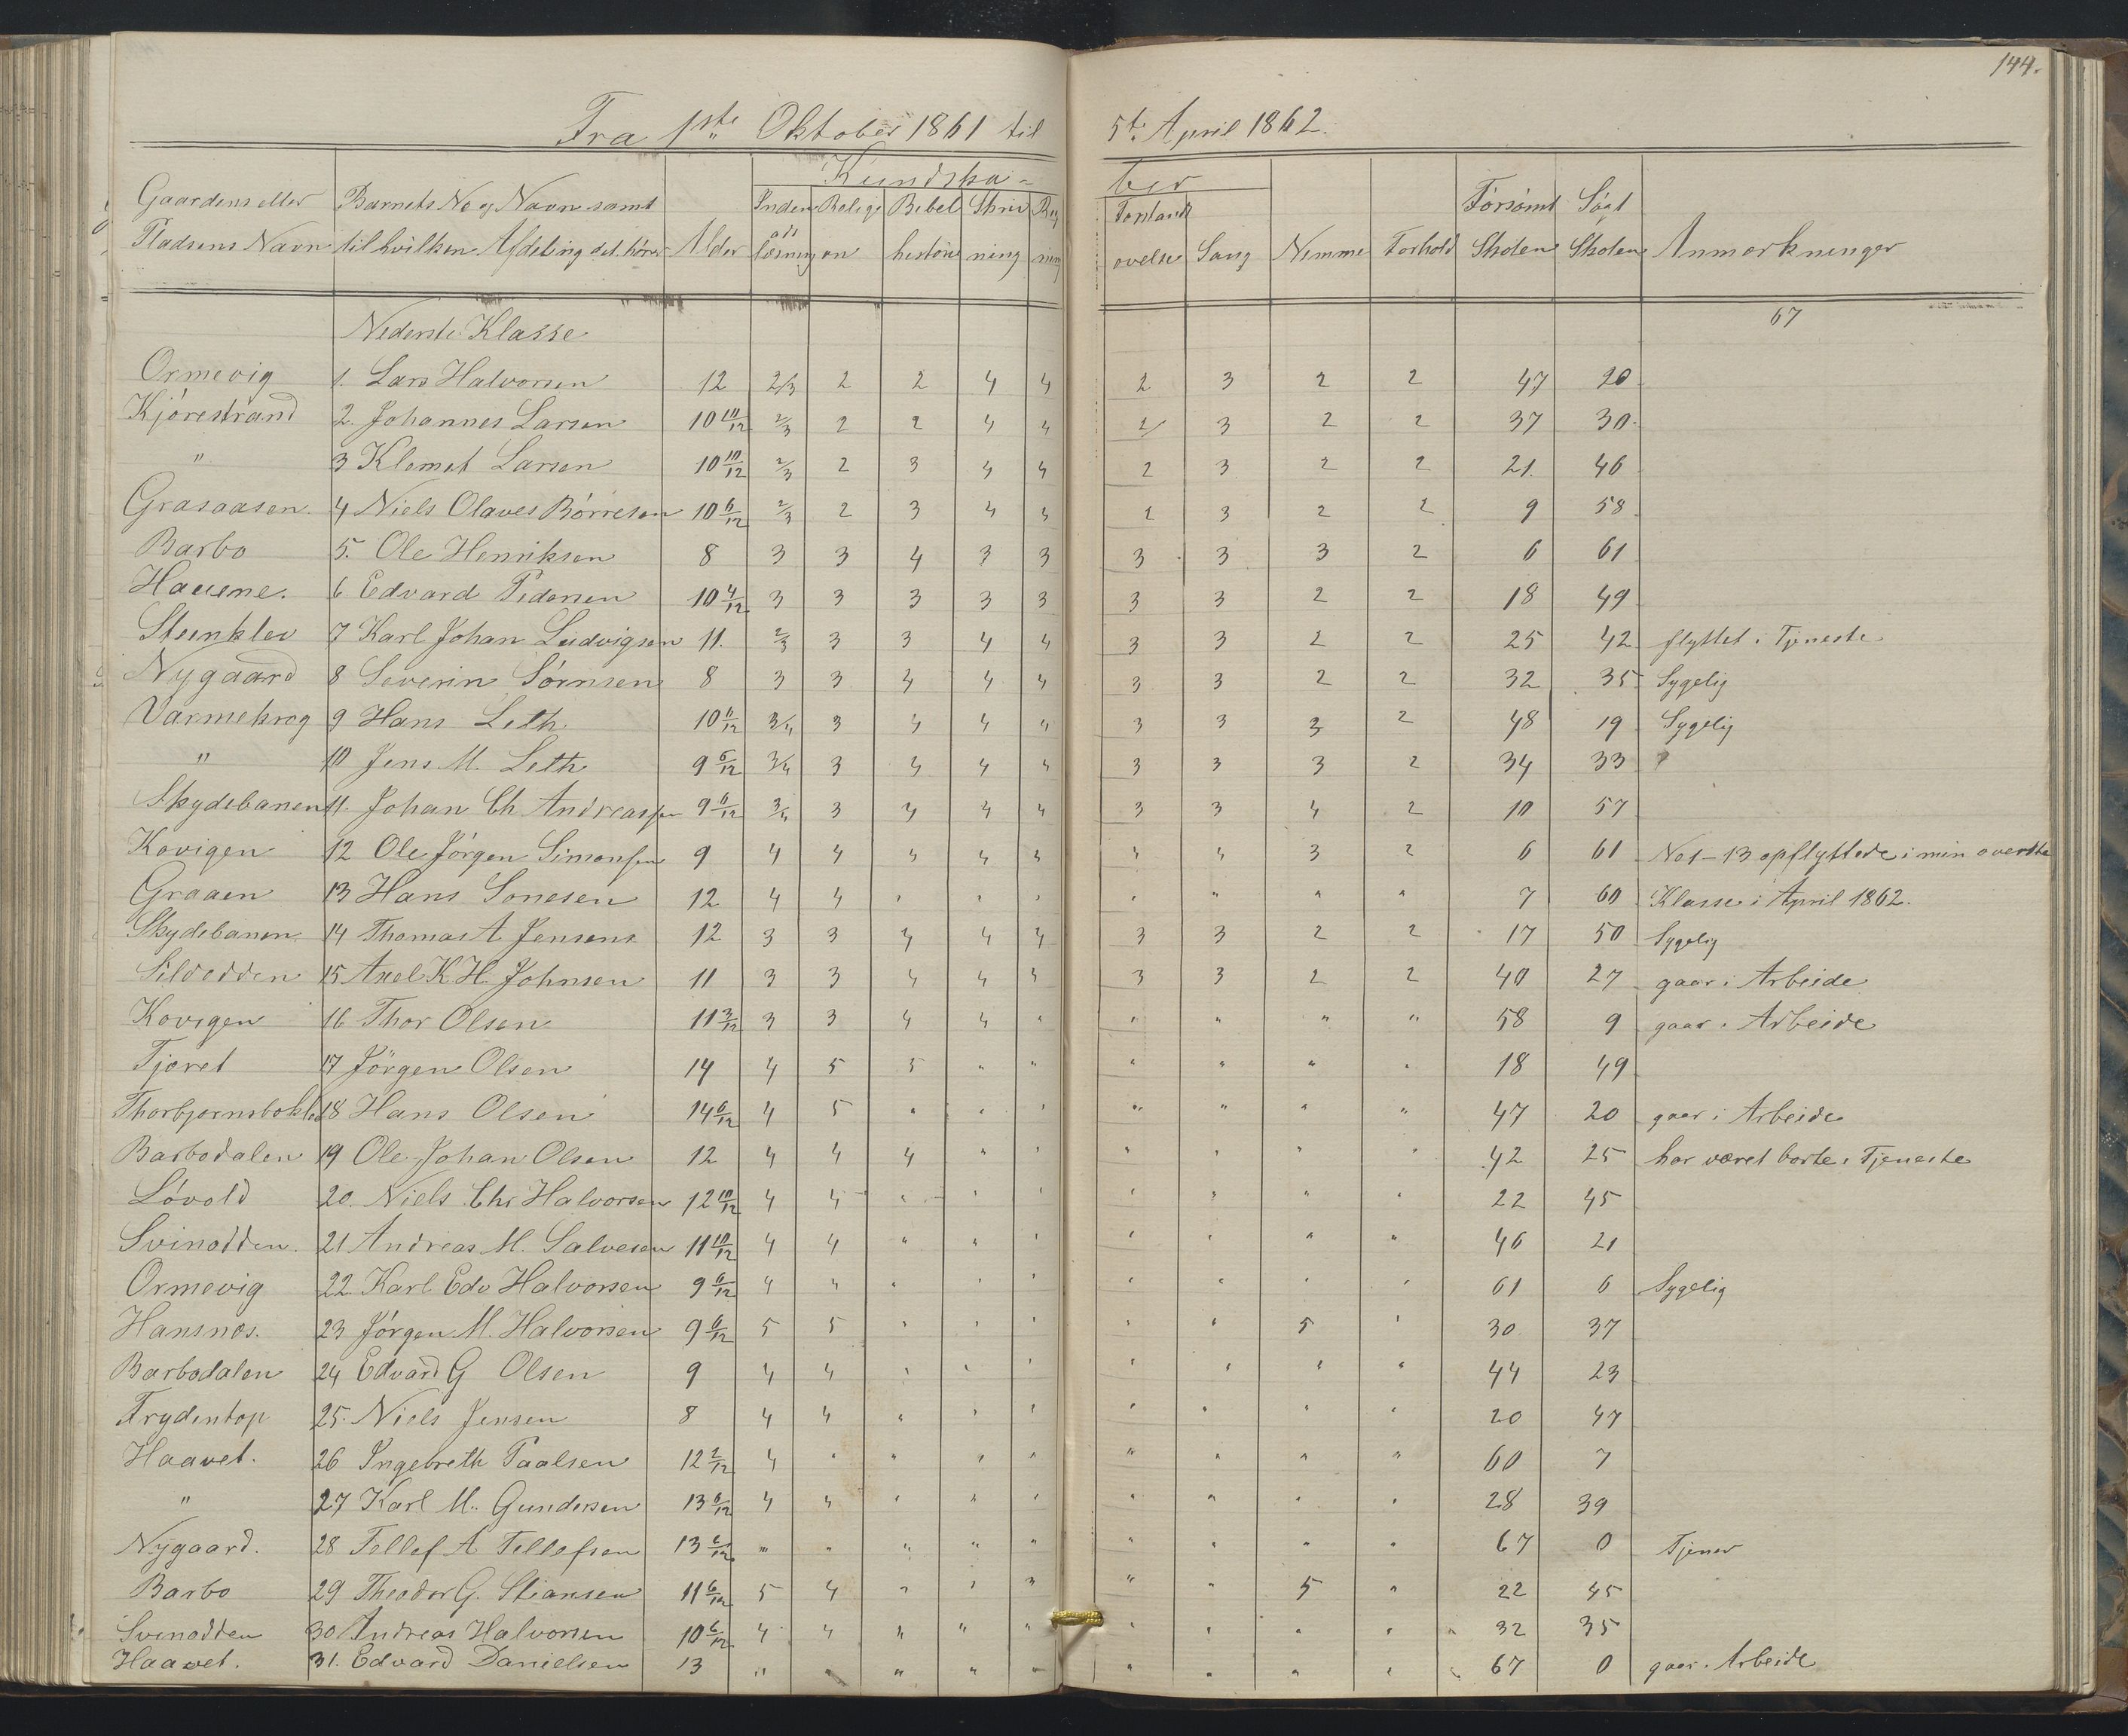 144.
Fra 1ste Oktober 1861 til 5te April 1862.
Kundska- ber
Gaardens eller Barnets No og Navn samt Inden Religi Bibel Skriv Reg Forstands Forsømt Søgt
Pladsens Navn til hvilken Afdeling det hører Alder læsning on historie ning ning øvelse Sang Nemme Forhold Skolen Skolen Anmærkninger
Nederste Klasse 67
Ormevig 1. Lars Halvorsen 12 2/3 2 2 4 4 2 3 2 2 47 20
Kjørestrand 2. Johannes Larsen 10 10/12 2/3 2 2 4 4 2 3 2 2 37 30.
" 3 Klemet Larsen 10 10/12 2/3 2 3 4 4 2 3 2 2 21. 46
Grasaasen. 4 Niels Olaves Børresen 10 6/12 2/3 2 3 4 4 2 3 2 2 9 58
Barbo 5. Ole Henriksen 8 3 3 4 3 3 3 3 3 2 6 61
Hauene. 6 Edvard Pedersen 10 4/12 3 3 3 3 3 3 3 2 2 18 49
Steenklev 7 Karl Johan Ludvigsen 11. 2/3 3 3 4 4 3 3 2 2 25 42 flyttet i Tjeneste
Nygaard 8 Severin Sørnsen 8 3 3 4 4 4 3 3 2 2 32 35 Sygelig
Varmekrog 9 Hans Leth 10 6/12 3/4 3 4 4 " 3 3 3 2 48 19 Sygelig
" 10 Jens M. Leth 9 6/12 3/4 3 4 4 4 3 3 3 2 34 33 "
Skydebanen 11. Johan Ch Andreassen 9 6/12 3/4 3 4 4 4 3 3 4 2 10 57
Kovigen 12 Ole Jörgen Simonsen 9 4 4 4 4 4 4 4 3 2 6 61 No 1-13 opflyttede i min øverste
Graaen 13 Hans Sonesen 12 4 4 " " " " " " " 7 60 Klasse i April 1862.
Skydebanen 14 Thomas A Jensen 12 3 3 4 4 4 3 3 2 2 17 50 Sygelig
Sildodden 15 Axel K. H. Johnsen 11 3 3 4 4 4 3 3 2 2 40 27 gaar i Arbeide
Kovigen 16 Thor Olsen 11 3/12 3 3 4 4 " " " " " 58 9 gaar i Arbeide
Tjæret 17 Jörgen Olsen 14 4 5 5 " " " " " " 18 49
18 Hans Olsen 14 6/12 4 5 " " " " " " " 47 20 gaar i Arbeide
Barbodalen 19 Ole Johan Olsen 12 4 4 4 " " " " " " 42 25 har været borte i Tjeneste
Løvold 20. Niels Chr Halvorsen 12 10/12 4 4 " " " " " " " 22 45
Svinodden. 21 Andreas M. Salvesen 11 10/12 4 4 " " " " " " " 46 21
Ormevig 22 Karl Edv Halvorsen 9 6/12 4 4 " " " " " " " 61 6 Sygelig
Hansnæs. 23 Jörgen M. Halvorsen 9 6/12 5 5 " " " " " 5 " 30 37
Barbodalen 24 Edvard G Olsen 9 4 4 " " " " " " " 44 23
Frydentop 25. Niels Jensen 8 4 4 " " " " " " " 20 47
Haavet. 26 Ingebreth Paalsen 12 2/12 4 " " " " " " " " 60 7
" 27 Karl M. Gundersen 13 6/12 4 4 " " " " " " " 28 39
Nygaard. 28 Tellef A Tellefsen 13 6/12 " " " " " " " " " 67 0 Tjener
Barbo 29 Theodor G. Stiansen 11 6/12 5 4 " " " " " 5 " 22 45
Svinodden 30 Andreas Halvorsen 10 6/12 4 4 " " " " " " " 32 35
Haavet. 31. Edvard Danielsen 13 " " " " " " " " " 67 0 gaar i Arbeide